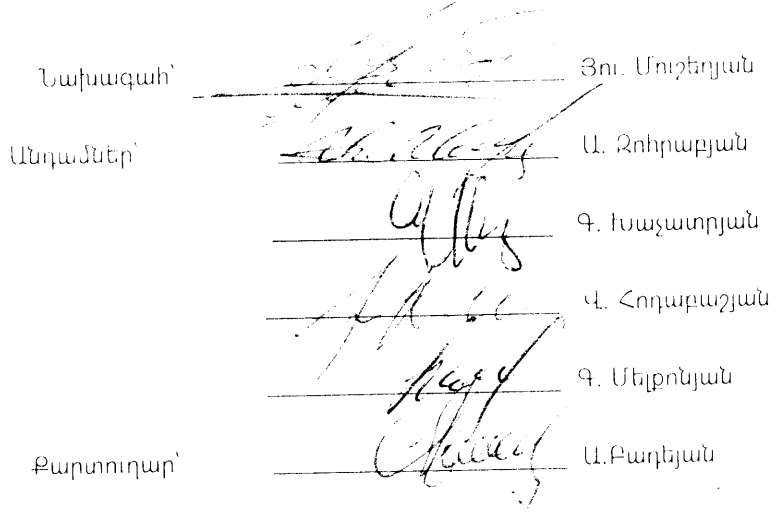 Նախագահ՝ Յու. Մուշեղյան
Անդամներ՝ Ա. Զոհրաբյան
Գ. Խաչատրյան
Վ. Հոդաբաշյան
Գ. Մելքոնյան
Քարտուղար՝ Ա.Բադեյան